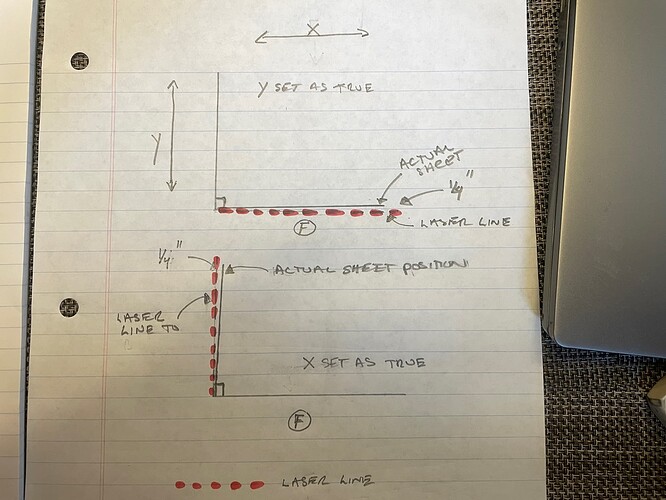 X
Y SET AS TRUE
Y
ACTUAL
SHEET
1/4"
LASER LINE
F
1/4"
ACTUAL SHEET POSITION
LASER
LINE TO
X SET AS TRUE
F
LASER LINE